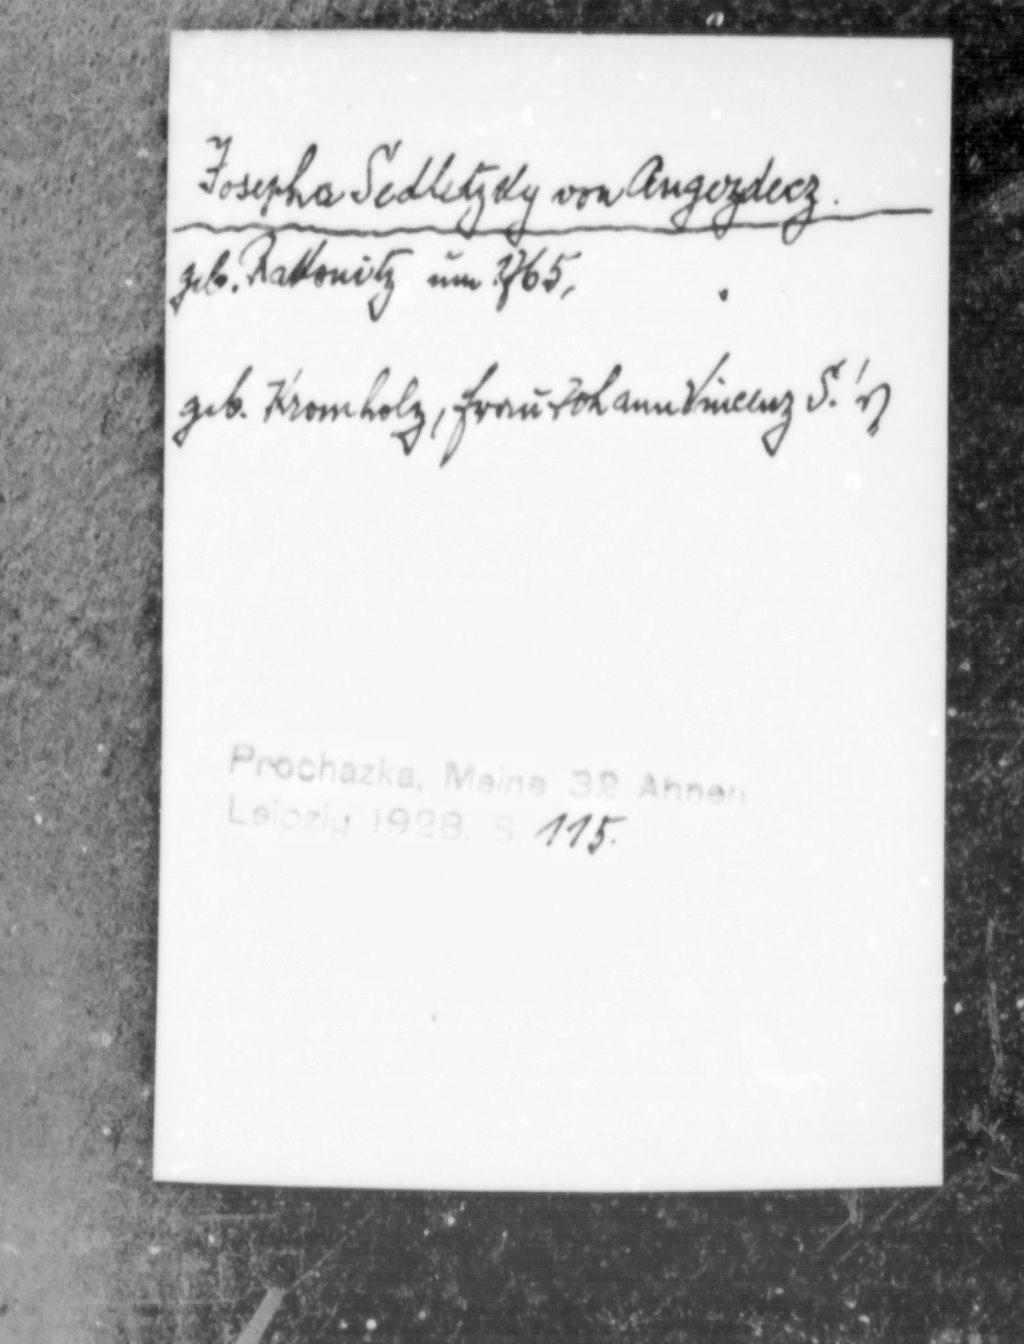 Josepha Sedletzky von Augezdecz.
geb. Rakonitz um 1765,
geb. Kromholz, Frau Johann Vincenz S.'s
Prochazka, Meine 32 Ahnen
Leipzig 1928. S. 115.